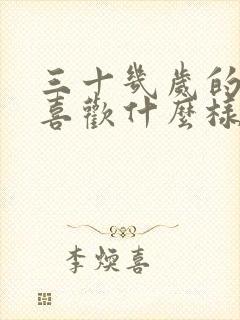 三十幾歲的
喜歡什麼樣
李煥喜